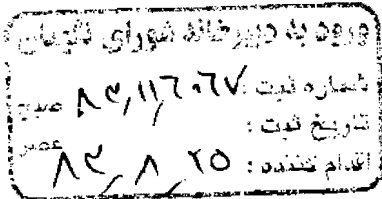 ورود به دبیرخانه شورای نگهبان
شماره ثبت : ۸۳،۱۱۶۰۶۷ صبح
تاریخ ثبت : عصر
اقدام کننده : ۸۳،۸،۲۵